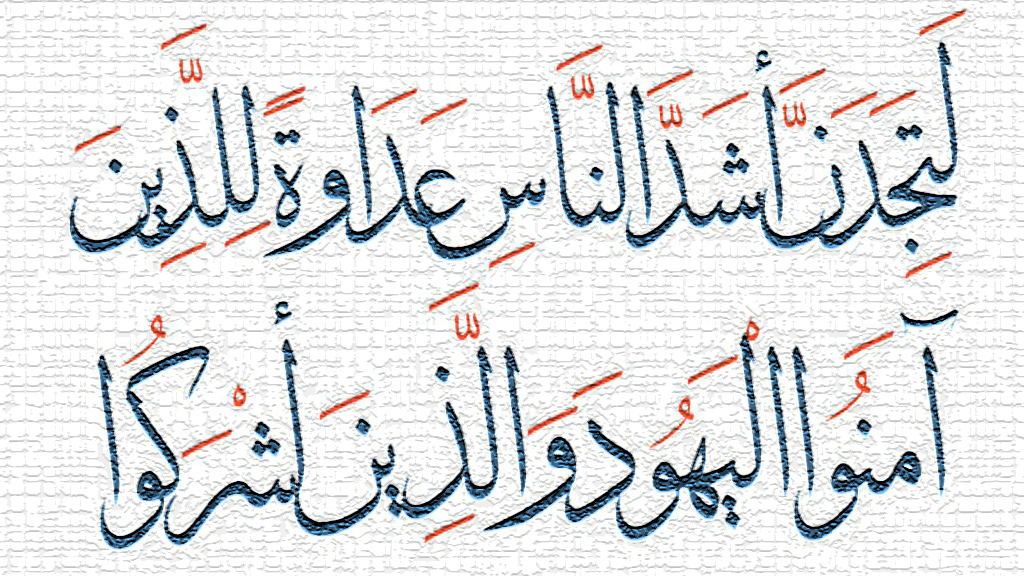 لَتَجِدَنَّ أَشَدَّ النَّاسِ عَدَاوَةً لِلَّذِينَ
آمَنُوا الْيَهُودَ وَالَّذِينَ أَشْرَكُوا